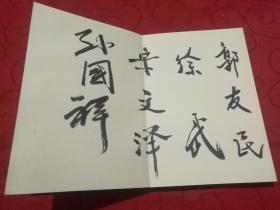 郭友民
徐民
宋文泽
孙国祥